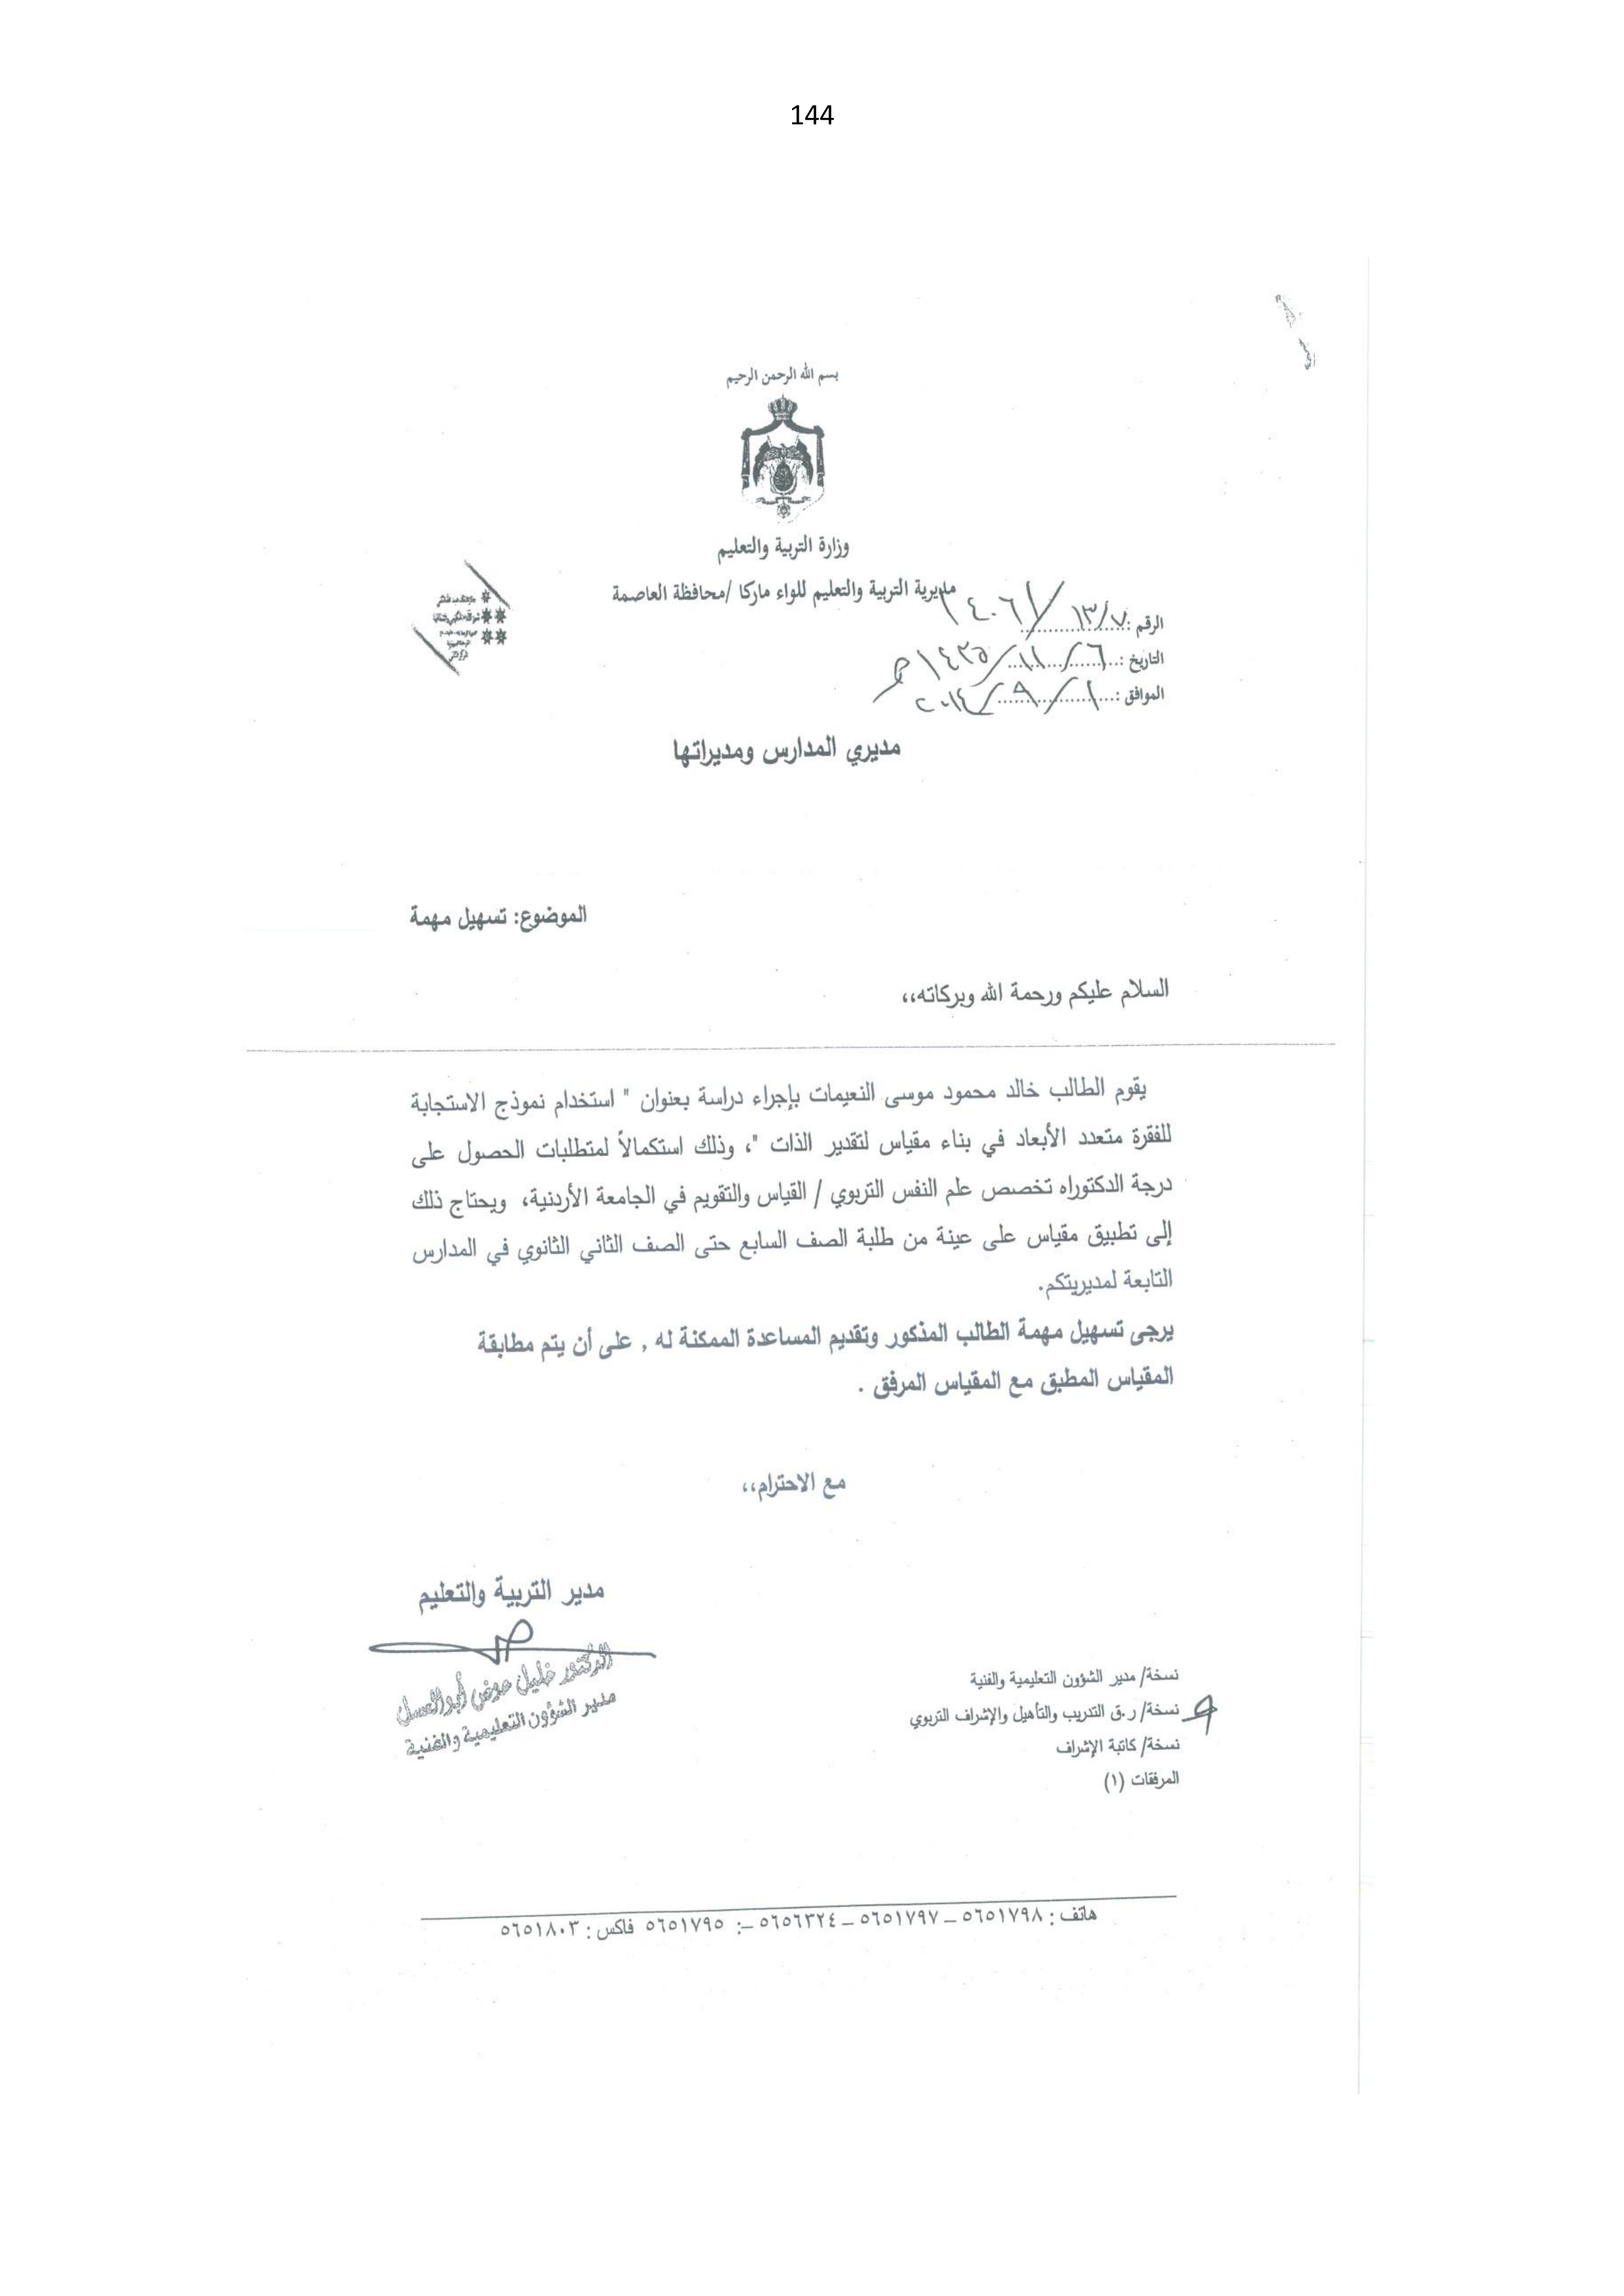 144
بسم الله الرحمن الرحيم
وزارة التربية والتعليم
مديرية التربية والتعليم للواء ماركا /محافظة العاصمة
الرقم : ١٣/٧/١٤٠٦١
التاريخ : ٦/١١/١٤٣٥هـ
الموافق : ١/٩/٢٠١٤
مديري المدارس ومديراتها
الموضوع: تسهيل مهمة
السلام عليكم ورحمة الله وبركاته،،
يقوم الطالب خالد محمود موسى النعيمات بإجراء دراسة بعنوان " استخدام نموذج الاستجابة
للفقرة متعدد الأبعاد في بناء مقياس لتقدير الذات "، وذلك استكمالاً لمتطلبات الحصول على
درجة الدكتوراه تخصص علم النفس التربوي / القياس والتقويم في الجامعة الأردنية، ويحتاج ذلك
إلى تطبيق مقياس على عينة من طلبة الصف السابع حتى الصف الثاني الثانوي في المدارس
التابعة لمديريتكم.
يرجى تسهيل مهمة الطالب المذكور وتقديم المساعدة الممكنة له , على أن يتم مطابقة
المقياس المطبق مع المقياس المرفق .
مع الاحترام،،
مدير التربية والتعليم
الدكتور خليل عوض أبو العسل
مدير الشؤون التعليمية والفنية
نسخة/ مدير الشؤون التعليمية والفنية
نسخة/ ر.ق التدريب والتأهيل والإشراف التربوي
نسخة/ كاتبة الإشراف
المرفقات (١)
هاتف : ٥٦٥١٧٩٨ – ٥٦٥١٧٩٧ – ٥٦٥٦٣٢٤ –: ٥٦٥١٧٩٥ فاكس : ٥٦٥١٨٠٣